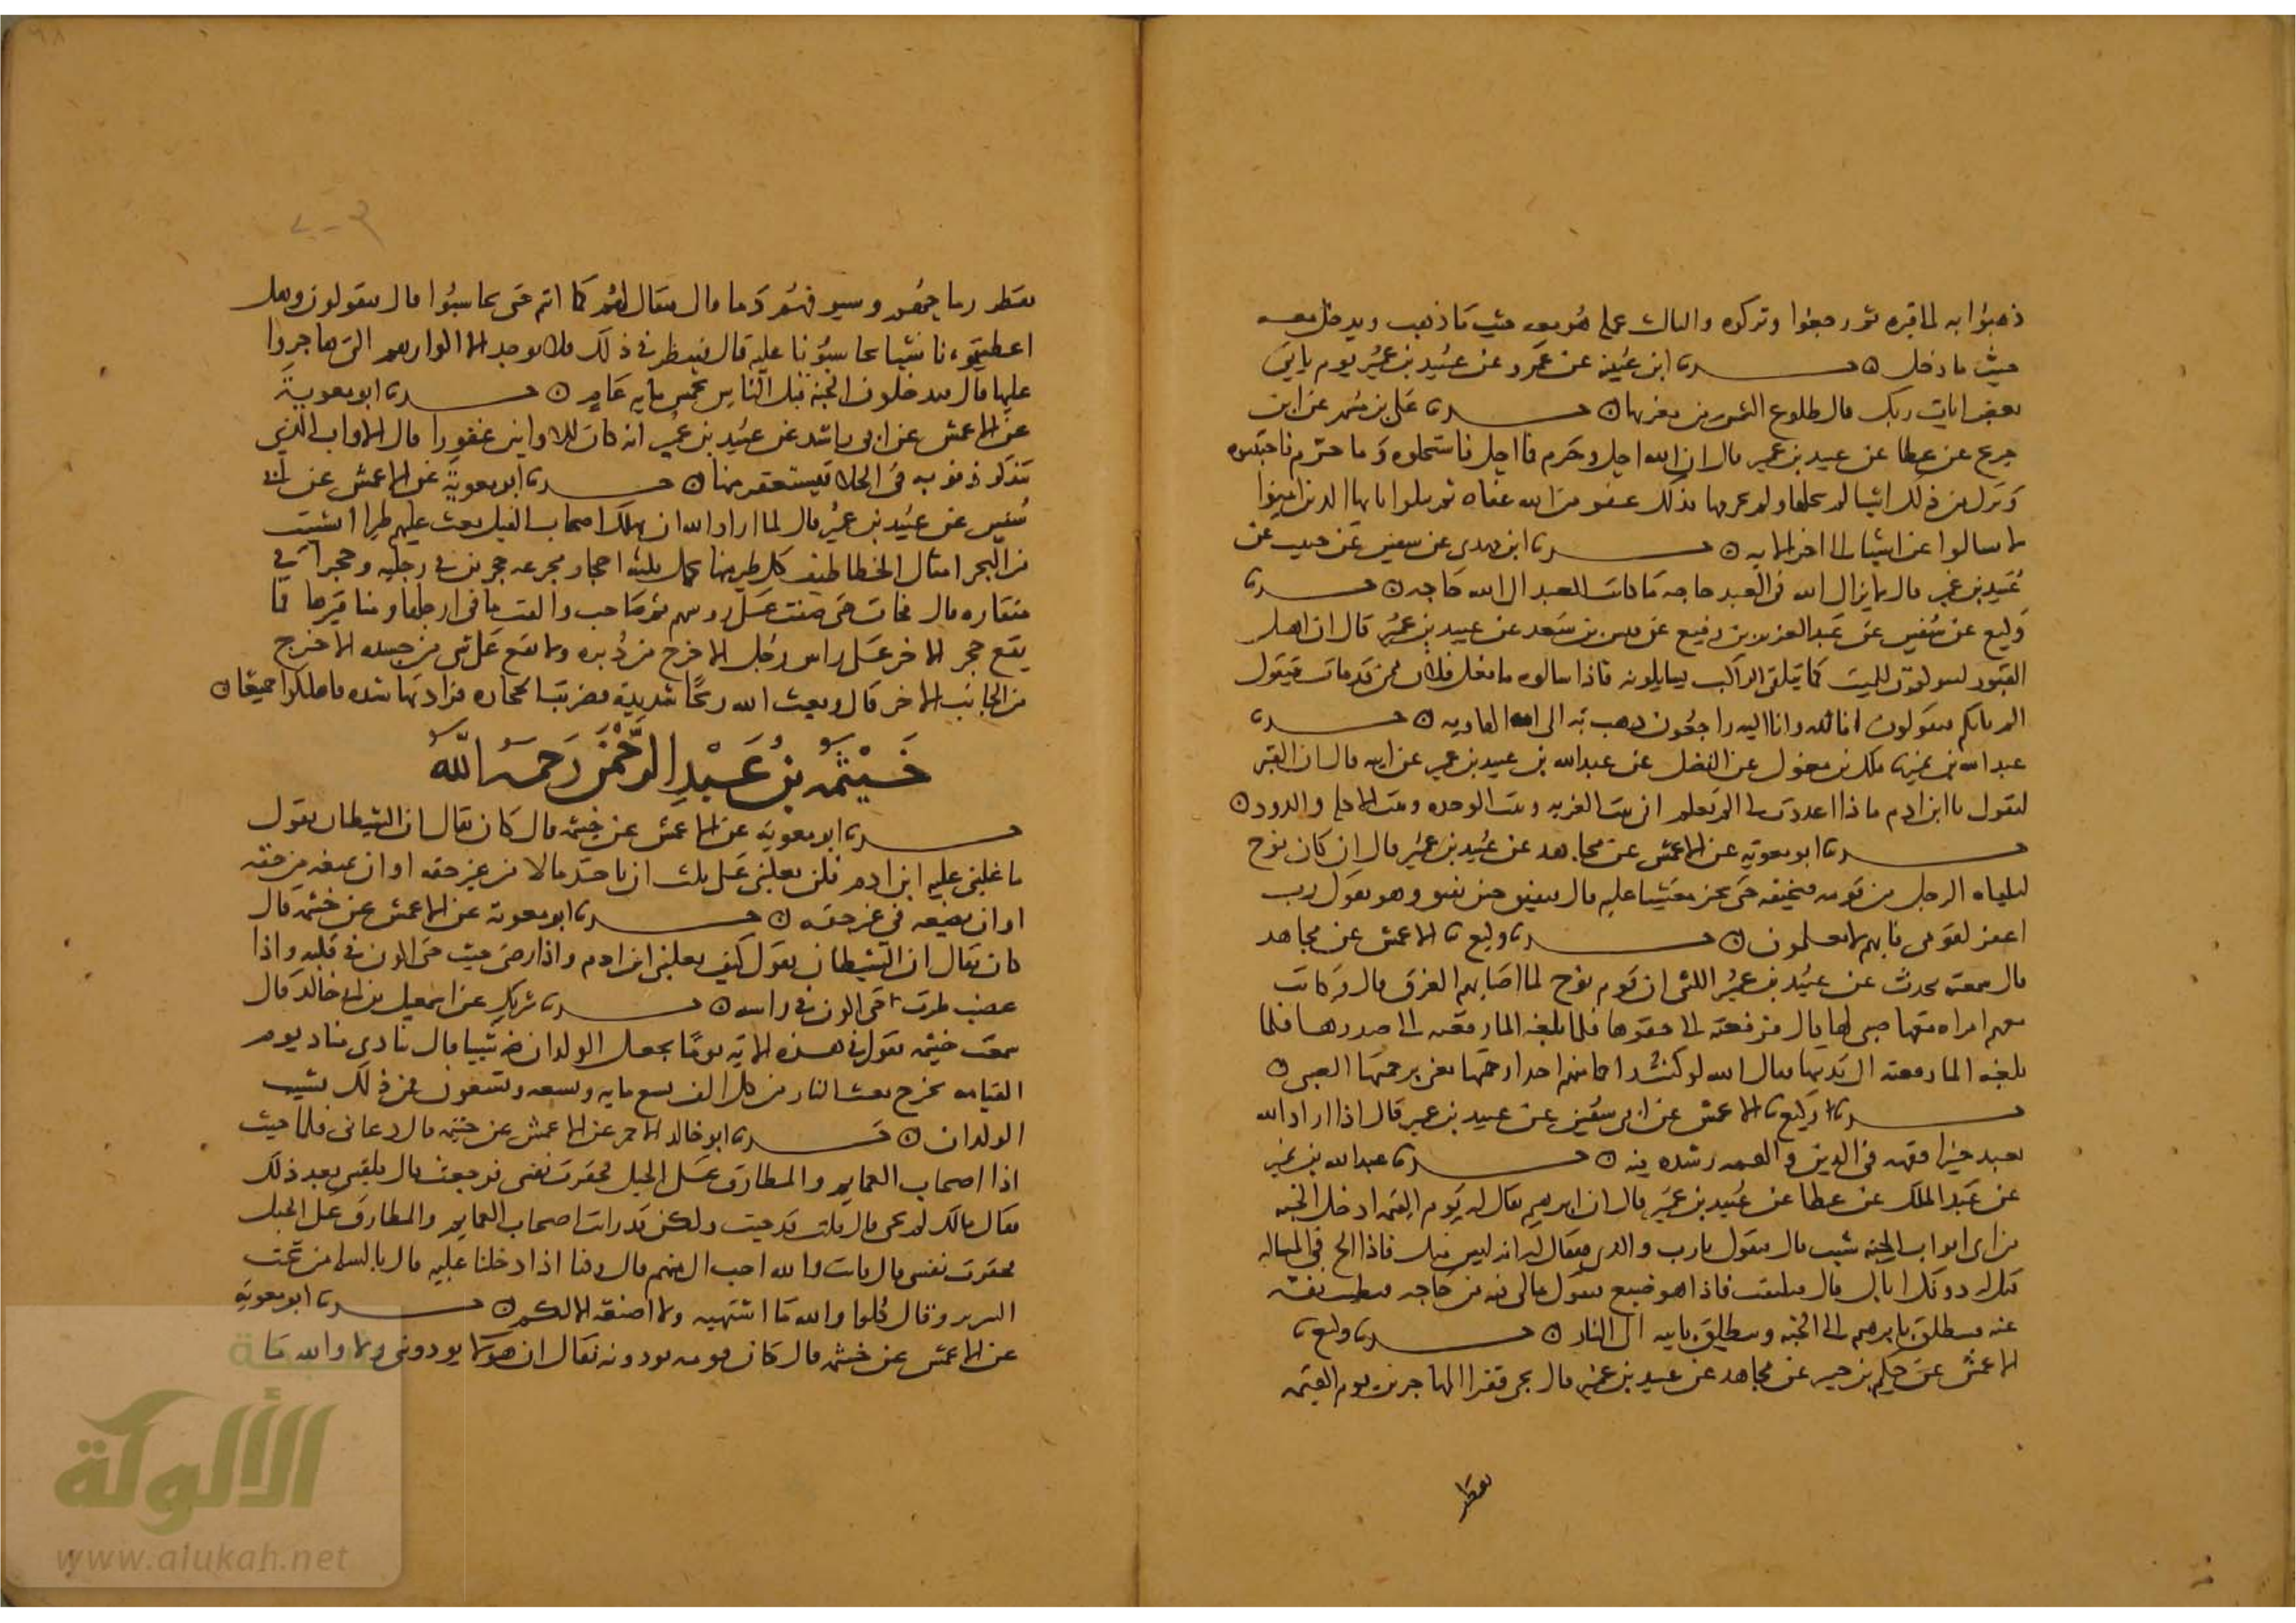 ذهبوا به الى قبره ثم رجعوا وتركوه والثالث عمله هو معه حيث ما ذهب ويدخل معه
حيث ما دخل ه حدثنا ابن عيينة عن عمرو عن عبيد بن عمير يوم يأتي
بعض ايات ربك قال طلوع الشمس من مغربها ه حدثنا علي بن مسهر عن ابن
جريج عن عطا عن عبيد بن عمير قال ان الله احل وحرم فما احل فاستحلوه وما حرم فاجتنبوه
وترك بين ذلك اشيا لم يحلها ولم يحرمها فذلك عفو من الله عفاه ثم يتلوا يا ايها الذين امنوا
لا تسالوا عن اشيا الى اخر الاية ه حدثنا ابن مهدي عن سفين عن حبيب عن
عبيد بن عمير قال لا يزال الله في العبد حاجة ما كانت للعبد الى الله حاجة ه حدثنا
وكيع عن سفين عن عبد العزيز بن رفيع عن قيس بن سعد عن عبيد بن عمير قال ان اهل
القبور ليتلقون الميت كما يتلقى الراكب يسايلونه فاذا سالوه ما فعل فلان ممن قد مات فيقول
الم ياتكم فيقولون انا لله وانا اليه راجعون ذهب به الى امه الهاوية ه حدثنا
عبد الله بن نمير نا ملك بن مغول عن الفضل عن عبد الله بن عبيد بن عمير عن ابيه قال ان القبر
ليقول يا ابن ادم ماذا اعددت لي الم تعلم اني بيت الغربة وبيت الوحدة وبيت الاكلة والدود ه
حدثنا ابو معوية عن الاعمش عن مجاهد عن عبيد بن عمير قال ان كان نوح
ليلقاه الرجل من قومه فيخنقه حتى يخر مغشيا عليه قال فيفيق حين يفيق وهو يقول رب
اغفر لقومي فانهم لا يعلمون ه حدثنا وكيع نا الاعمش عن مجاهد
قال سمعته يحدث عن عبيد بن عمير الليثي ان قوم نوح لما اصابهم الغرق قال وكانت
معهم امراة معها صبي لها قال فرفعته الى حقوها فلما بلغه الما رفعته الى صدرها فلما
بلغه الما رفعته الى ثديها فقال الله لو كنت راحما منهم احدا رحمتها يعني برحمتها الصبي ه
حدثنا وكيع نا الاعمش عن ابي سفين عن عبيد بن عمير قال اذا اراد الله
بعبد خيرا فقهه في الدين والهمه رشده فيه ه حدثنا عبد الله بن نمير
عن عبد الملك عن عطا عن عبيد بن عمير قال ان ابرهيم يقال له يوم القيمة ادخل الجنة
من اي ابواب الجنة شيت قال فيقول يا رب والدي فيقال له انه ليس منك فاذا الح في المسالة
قيل له دونك اباك قال فيلتفت فاذا هو ضبع فيقول مالي فيه من حاجة فتطيب نفسه
عنه فينطلق بابرهيم الى الجنة وينطلق بابيه الى النار ه حدثنا وكيع نا
الاعمش عن حكيم بن جبير عن مجاهد عن عبيد بن عمير قال يجي فقرا المهاجرين يوم القيمة
تقطر
تقطر رماحهم وسيوفهم دما قال فيقال لهم كما انتم حتى تحاسبوا قال فيقولون وهل
اعطيتمونا شيا تحاسبونا عليه قال فينظر في ذلك فلا يوجد الا اكوارهم التي هاجروا
عليها قال فيدخلون الجنة قبل الناس بخمس ماية عام ه حدثنا ابو معوية
عن الاعمش عن ابي راشد عن عبيد بن عمير انه كان للاوابين غفورا قال الاواب الذي
يتذكر ذنوبه في الخلا فيستغفر منها ه حدثنا ابو معوية عن الاعمش عن ابي
سفين عن عبيد بن عمير قال لما اراد الله ان يهلك اصحاب الفيل بعث عليهم طيرا انشيت
من البحر امثال الخطاطيف كل طير منها يحمل ثلثة احجار مجزعة حجرين في رجليه وحجرا في
منقاره قال فجات حتى صفت على روسهم ثم صاحت والقت ما في ارجلها ومناقيرها فما
يقع حجر الاخر على راس رجل الا خرج من دبره ولا يقع على شي من جسده الا خرج
من الجانب الاخر قال وبعث الله ريحا شديدة فضربت الحجارة فزادتها شدة فاهلكوا جميعا ه
خيثمة بن عبد الرحمن رحمه الله
حدثنا ابو معوية عن الاعمش عن خيثمة قال كان يقال ان الشيطان يقول
ما غلبني عليه ابن ادم فلن يغلبني على ثلث ان ياخذ مالا من غير حقه او ان يمنعه من حقه
او ان يضعه في غير حقه ه حدثنا ابو معوية عن الاعمش عن خيثمة قال
كان يقال ان الشيطان يقول كيف يغلبني ابن ادم واذا رضي جيت حتى اكون في قلبه واذا
غضب طرت حتى اكون في راسه ه حدثنا شريك عن اسمعيل بن ابي خالد قال
سمعت خيثمة يقول في هذه الاية يوما يجعل الولدان شيبا قال ينادي مناد يوم
القيامة يخرج بعث النار من كل الف تسع ماية وتسعة وتسعون فمن ذلك يشيب
الولدان ه حدثنا ابو خالد الاحمر عن الاعمش عن خيثمة قال دعاني فلما جيت
اذا اصحاب العمايم والمطارف على الخيل فحقرت نفسي فرجعت قال فلقيني بعد ذلك
فقال مالك لم تجي قال قلت قد جيت ولكن قد رايت اصحاب العمايم والمطارف على الخيل
فحقرت نفسي قال فانت والله احب الي منهم قال وكنا اذا دخلنا عليه قال بالسلة من تحت
السرير وقال كلوا والله ما اشتهيه ولا اصنعه الا لكم ه حدثنا ابو معوية
عن الاعمش عن خيثمة قال كان قومه يوذونه فقال ان هولا يوذوني ولا والله ما
الألوكة
www.alukah.net